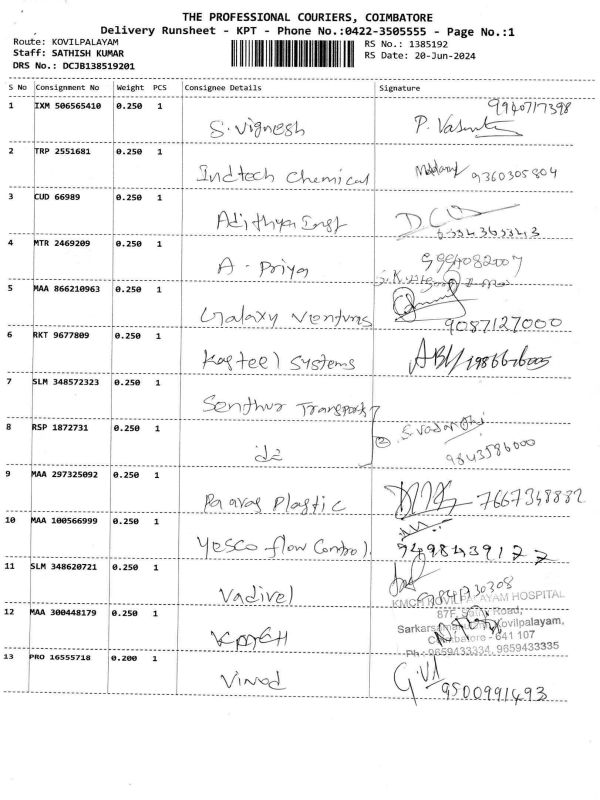 THE PROFESSIONAL COURIERS, COIMBATORE
Delivery Runsheet - KPT - Phone No.:0422-3505555 - Page No.:1
Route: KOVILPALAYAM
RS No.: 1385192
Staff: SATHISH KUMAR
RS Date: 20-Jun-2024
DRS No.: DCJB138519201
S No Consignment No Weight PCS Consignee Details Signature
1 IXM 506565410 0.250 1 S.Vignesh 9940717398
2 TRP 2551681 0.250 1 Indtech Chemical 9360305804
3 CUD 66989 0.250 1 Adithya
4 MTR 2469209 0.250 1 A. Priya 9994082007
5 MAA 866210963 0.250 1 Galaxy Ventures 9087127000
6 RKT 9677809 0.250 1 Kasteel Systems
7 SLM 348572323 0.250 1 Senthur Transport
8 RSP 1872731 0.250 1 9843586000
9 MAA 297325092 0.250 1 Paavas Plastic 7667348882
10 MAA 100566999 0.250 1 Yesco flow Control 9498439177
11 SLM 348620721 0.250 1 Vadivel
KMCH KOVILPALAYAM HOSPITAL
12 MAA 300448179 0.250 1 KMCH
Kovilpalayam,
Coimbatore - 641 107
Ph : 9659433334, 9659433335
13 PRO 16555718 0.200 1 Vinod 9500991493